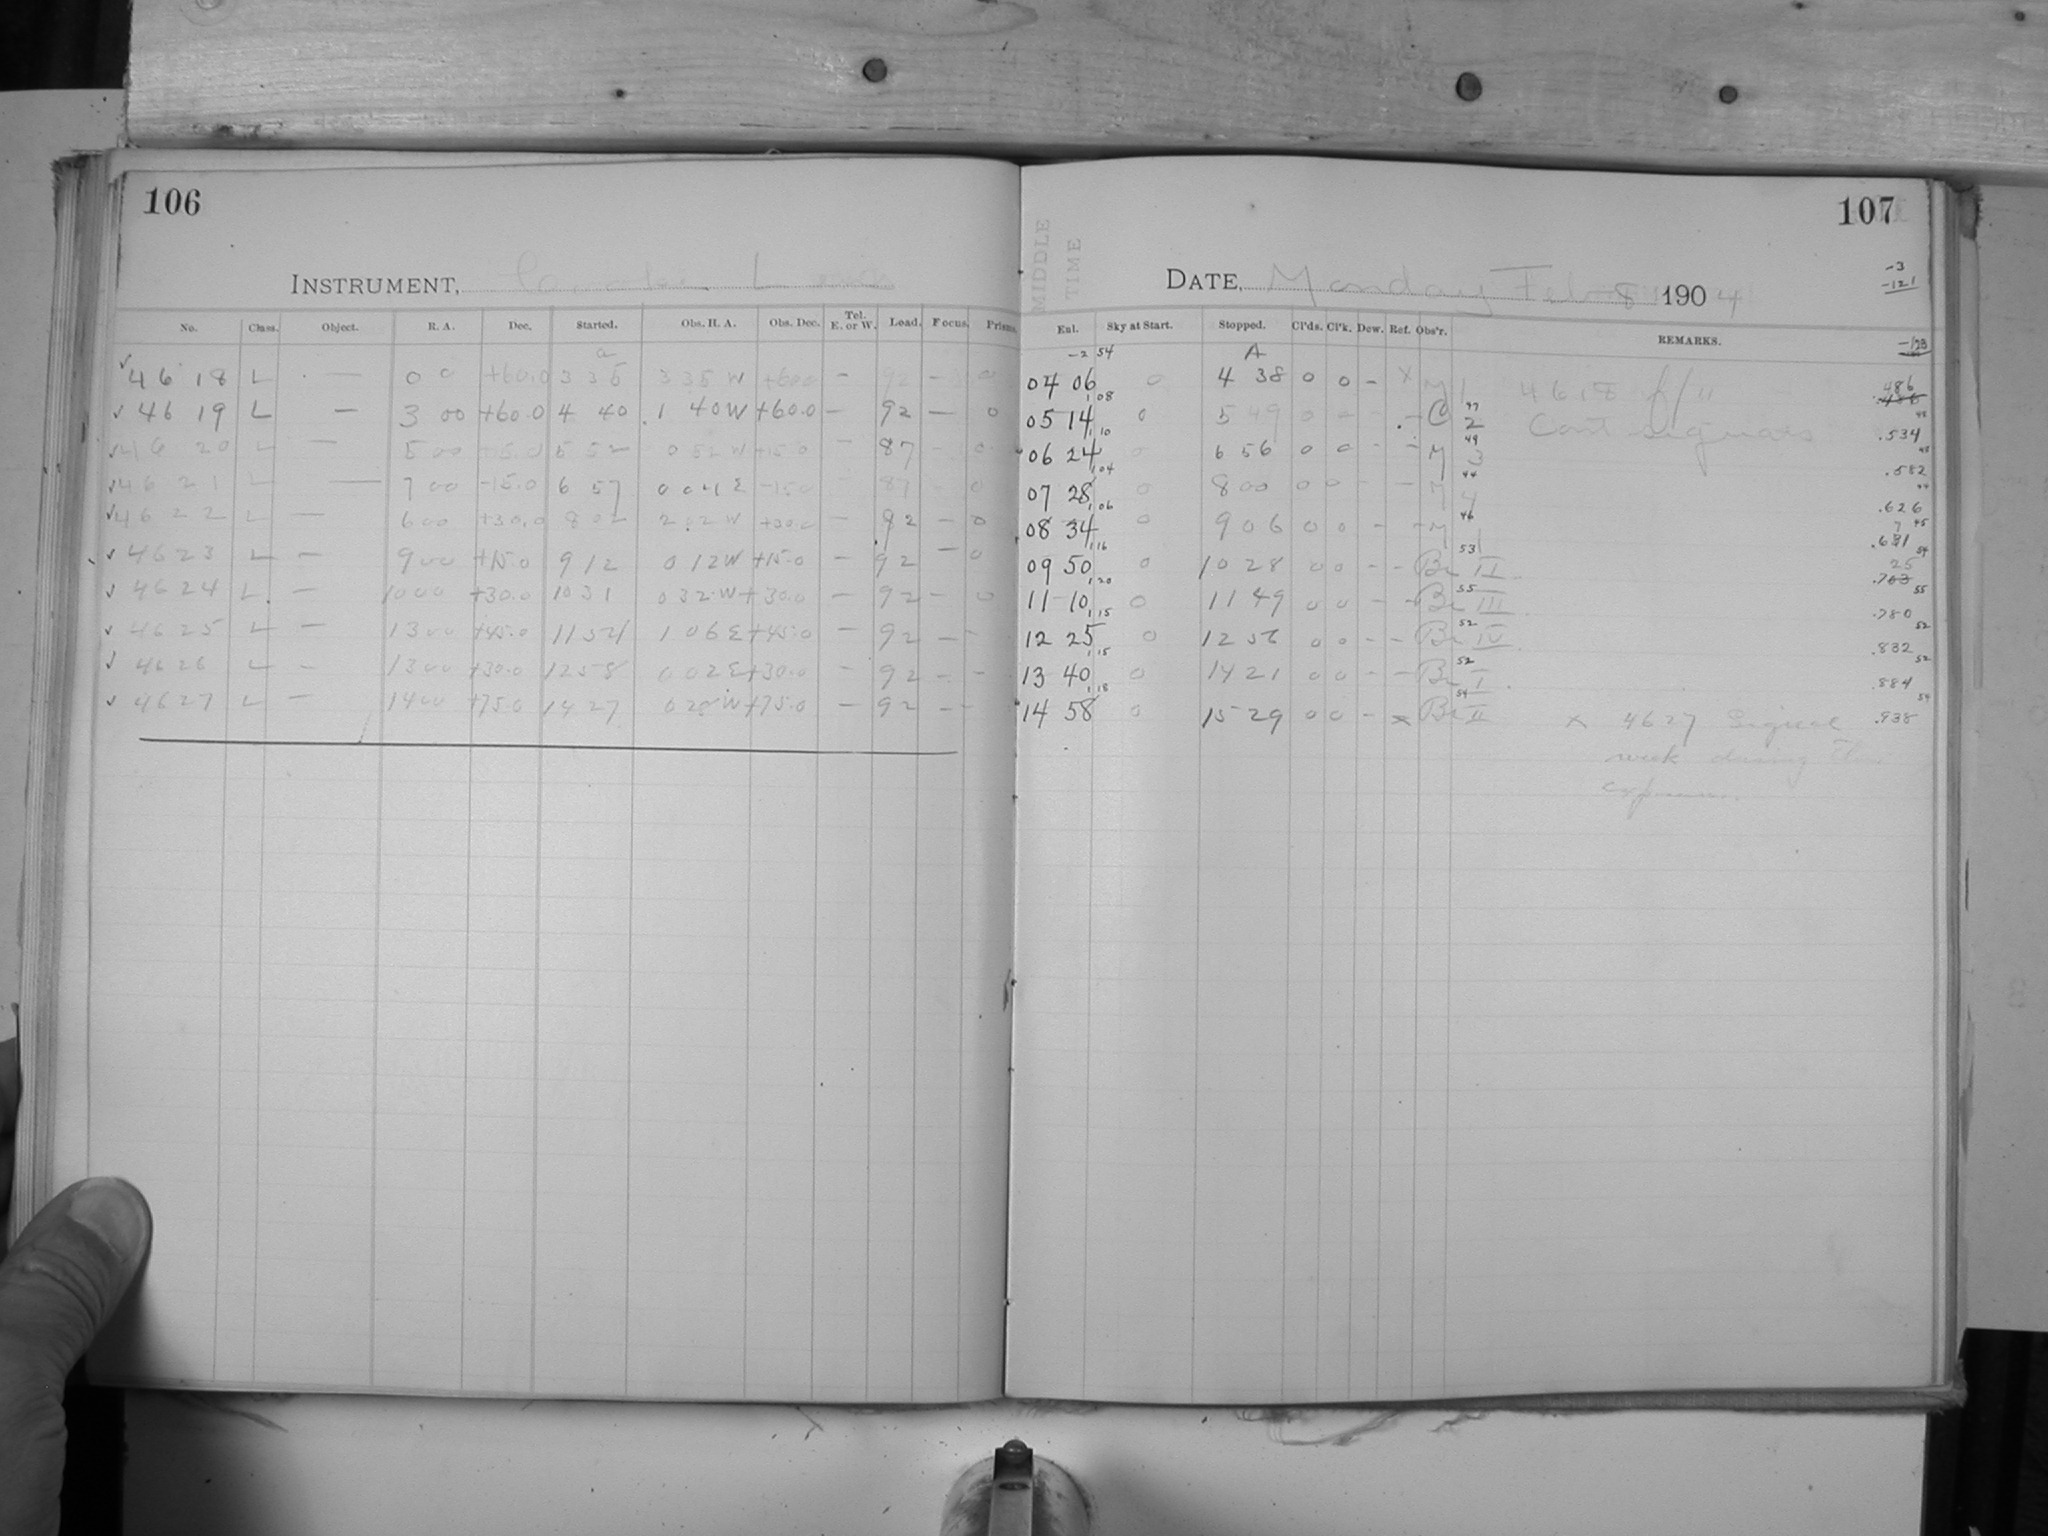 106
INSTRUMENT,
No. Class. Object. R. A. Dec. Started. Obs. H. A. Obs. Dec. Tel. E. or W. Load. Focus. Prisms.
a
✓ 4618 L — 0 00 +60.0 3 35 3 35 W +60.0 — 92 — 0
✓ 4619 L — 3 00 +60.0 4 40 1 40 W +60.0 — 92 — 0
✓ 4620 L — 5 00 -15.0 5 52 0 52 W -15.0 — 87 — 0
✓ 4621 L — 7 00 -15.0 6 57 0 04 E -15.0 87 — 0
✓ 4622 L — 6 00 +30.0 8 02 2 02 W +30.0 — 92 — 0
✓ 4623 L — 9 00 +15.0 9 12 0 12 W +15.0 — 92 — 0
✓ 4624 L — 10 00 +30.0 10 31 0 32 W +30.0 — 92 — 0
✓ 4625 L — 13 00 +45.0 11 54 1 06 E +45.0 — 92 — -
✓ 4626 L — 13 00 +30.0 12 58 0 02 E +30.0 — 92 - -
✓ 4627 L — 14 00 +75.0 14 27 0 28 W +75.0 — 92 — -
107
MIDDLE
TIME
DATE, Monday Feb. 8 1904
-3
-121
Enl. Sky at Start. Stopped. Cl'ds. Cl'k. Dew. Ref. Obs'r. REMARKS.
-123
-2 54 A
04 06 0 4 38 0 0 - x M 1 4618 .486
1 08
05 14 0 5 49 0 - - - C 47 2 Cont signals .534 48
1 10
06 24 0 6 56 0 0 - - M 49 3 .582 48
1 04
07 28 0 8 00 0 0 - - M 44 4 .626 44
1 06
08 34 0 9 06 0 0 - - M 46 .671 45
1 16
09 50 0 10 28 0 0 - - Br 53 II .725 54
1 20
11 10 0 11 49 0 0 - - Br 55 III .780 55
1 15
12 25 0 12 56 0 0 - - Br 52 IV .832 52
1 15
13 40 0 14 21 0 0 - - Br 52 I .884 52
1 18
14 58 0 15 29 0 0 - x Br 54 II x 4627 Signal .938 54
weak during this
exposure.